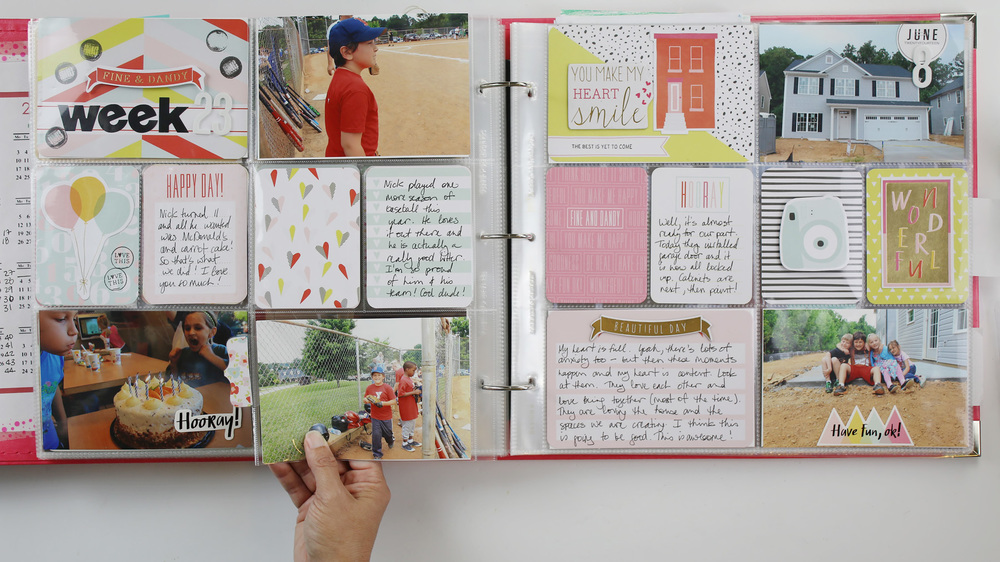 FINE & DANDY
week 23
HAPPY DAY!
Nick turned 11
and all he wanted
was McDonald's
and carrot cake!
So that's what
we did! I love
you so much!
LOVE
THIS
LOVE
THIS
Nick played one
more season of
baseball this
year. He loves
it out there and
he is actually a
really good hitter.
I'm so proud
of him & his
team! Good dude!
Hooray!
YOU MAKE MY
HEART
smile
THE BEST IS YET TO COME
JUNE
FINE AND DANDY
HOORAY
Well, it's almost
ready for our part.
Today they installed
garage door and it
is now all locked
up. Cabinets are
next, then paint!
WON
DE
RFUL
BEAUTIFUL DAY
My heart is full. Yeah, there's lots of
anxiety too - but then these moments
happen and my heart is content. Look
at them. They love each other and
love being together (most of the time).
They are loving the house and the
spaces we are creating. I think this
is going to be good. This is awesome!
Have fun, ok!